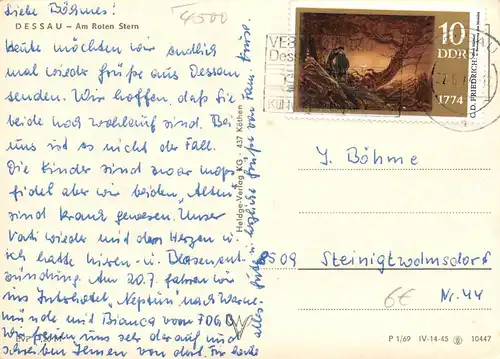 Liebe Böhmes!
DESSAU — Am Roten Stern
4500
Heute möchten wir endlich
mal wieder Grüße aus Dessau
senden. Wir hoffen, daß Sie
beide noch wohlauf sind. Bei
uns ist es nicht der Fall.
Die Kinder sind zwar mops-
fidel aber wir beiden „Alten"
sind krank gewesen. Unser
Vati wieder mit dem Herzen u.
ich hatte Nieren- u. Blasenent-
zündung. Am 20.7. fahren wir
ins Interhotel „Neptun" nach Warne-
münde mit Bianca vom FDGB.
Wir freuen uns sehr darauf und
schreiben Ihnen von dort. Für heute
alles Gute u. herzliche Grüße von Fam.
Heldge-Verlag KG · 437 Köthen
10
DDR
1774
C.D. FRIEDRICH
J. Böhme
8509 Steinigtwolmsdorf
Nr. 44
6€
P 1/69 IV-14-45 10447